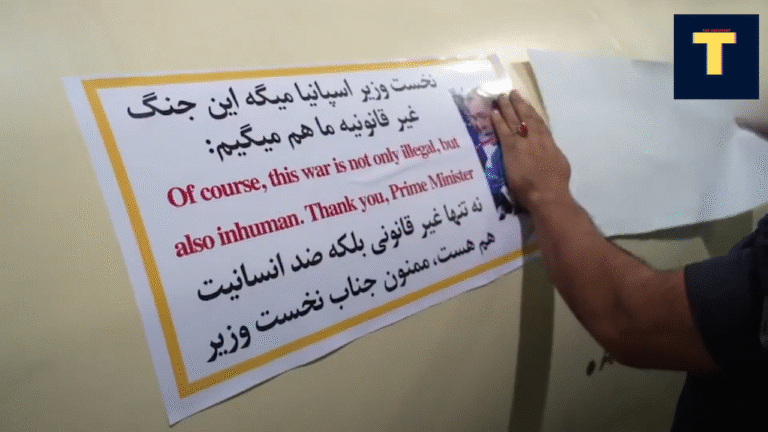 نخست وزیر اسپانیا میگه این جنگ
غیر قانونیه ما هم میگیم:
Of course, this war is not only illegal, but
also inhuman. Thank you, Prime Minister
نه تنها غیر قانونی بلکه ضد انسانیت
هم هست، ممنون جناب نخست وزیر
T